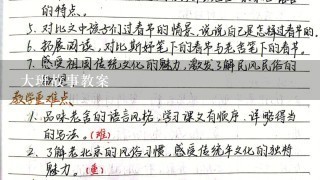 的特点。
5. 对比文中孩子们过春节的情景，说说自己是怎样过春节的。
6. 拓展阅读，对比斯好笔下的春节与老舍笔下的春节。
7. 感受祖国传统文化的魅力，激发了解民风民俗的
大班故事教案
教学重难点
1. 品味老舍的语言风格，学习课文有顺序、详略得当
的写法。（难）
2. 了解老北京的风俗习惯，感受传统年文化的独特
魅力。（重）